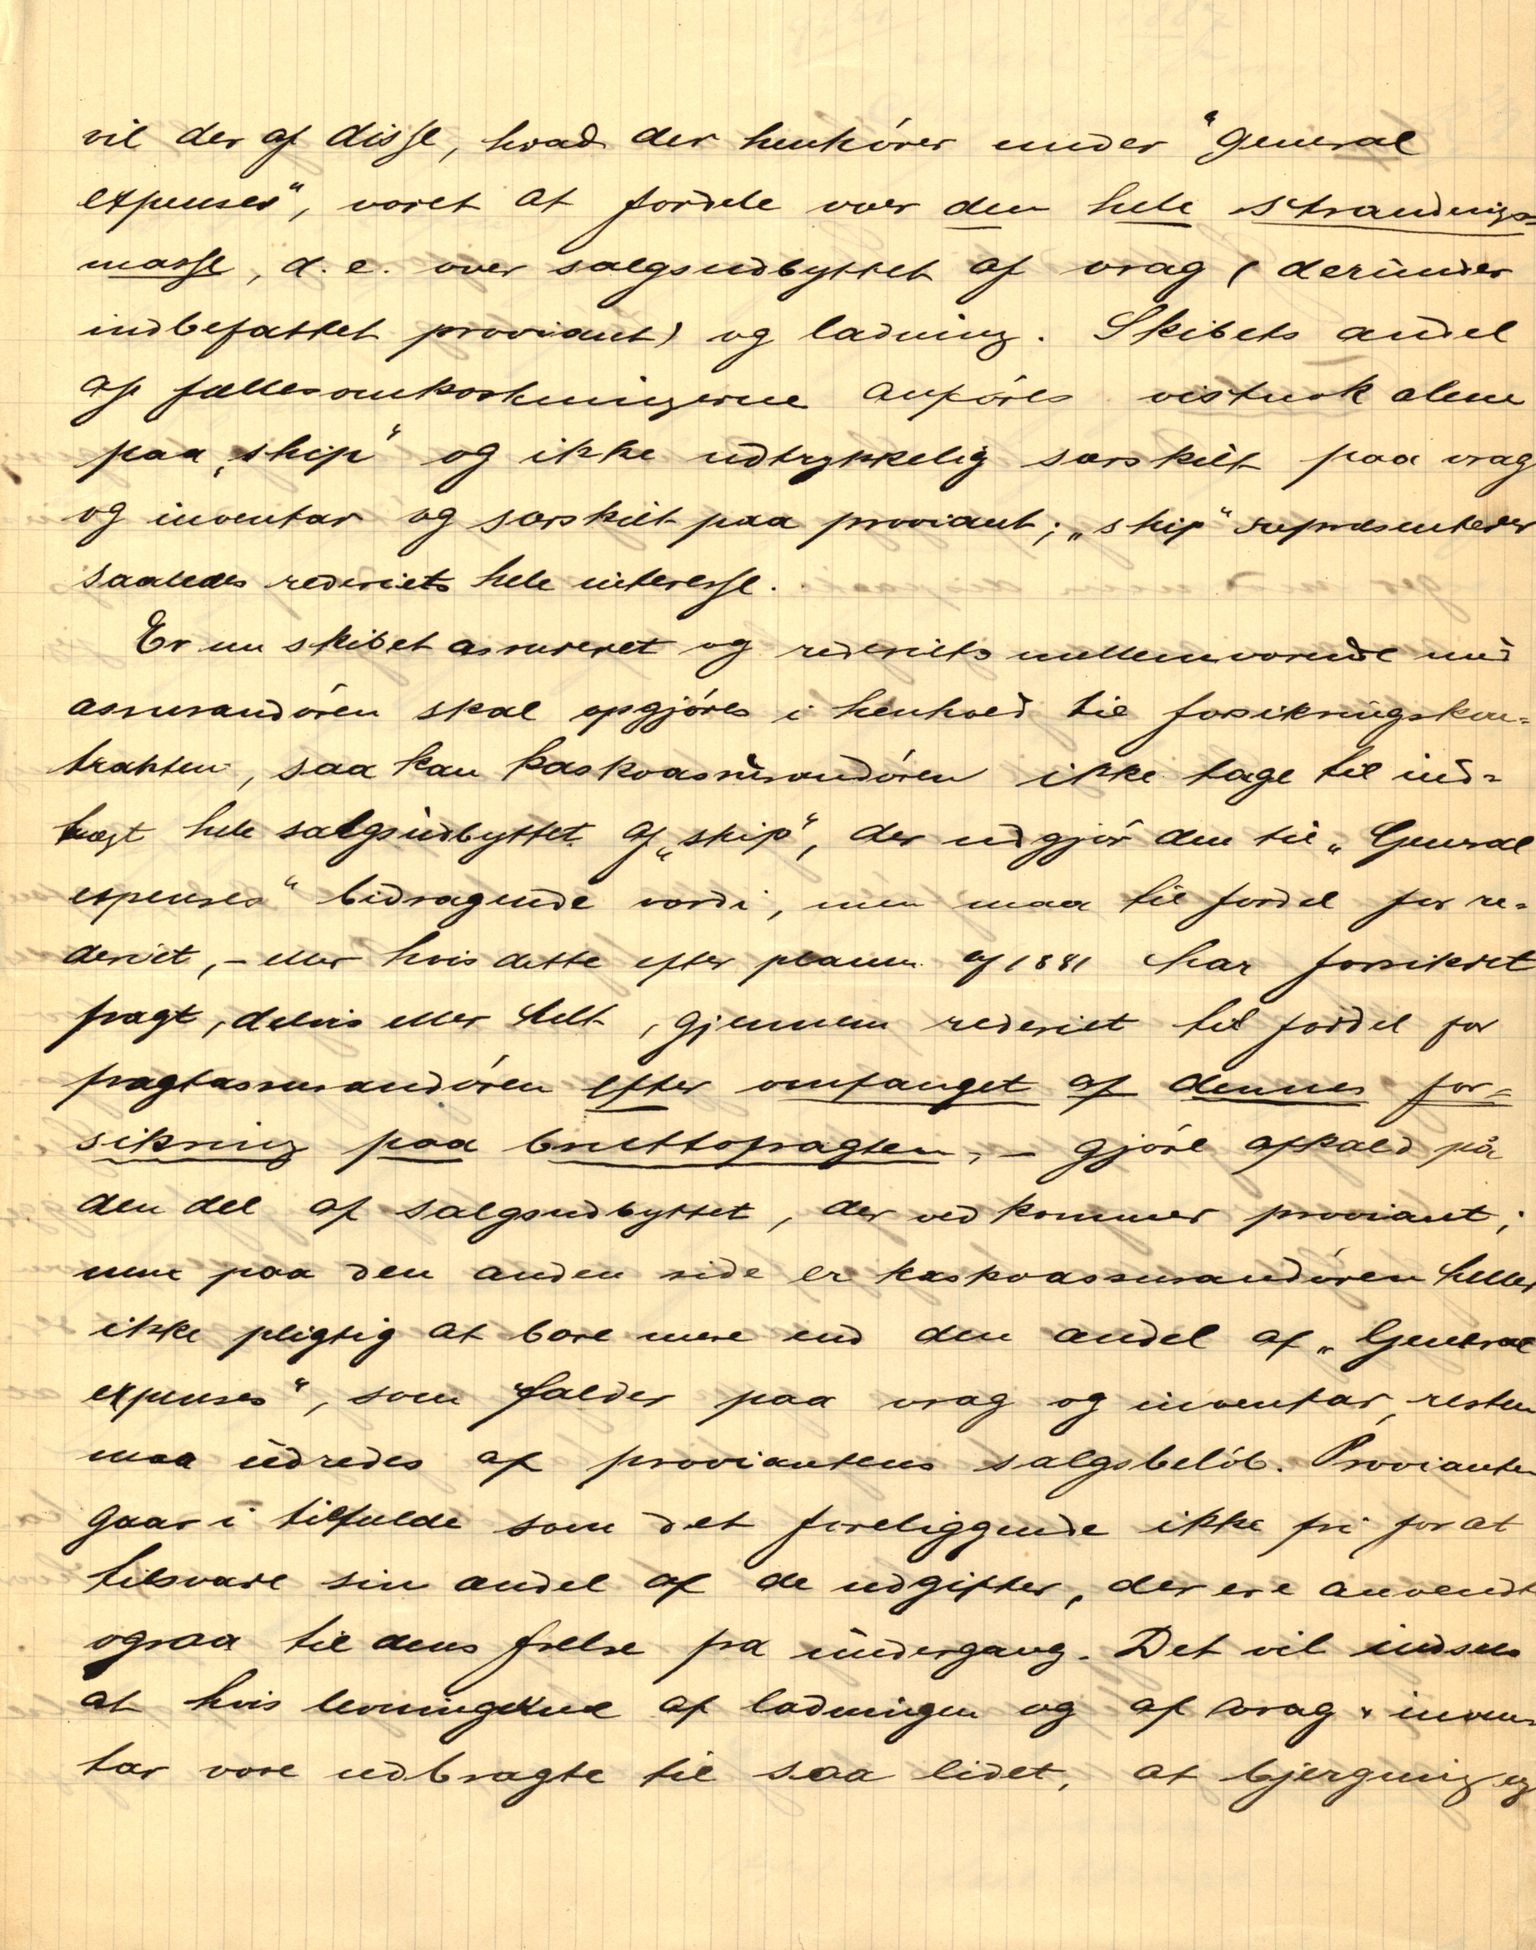 vil der af disse, hvad der henhører under "General
expenses", været at fordele over den hele strandings-
masse, d. e. over salgsudbyttet af vrag (derunder
indbefattet proviant) og ladning. Skibets andel
af fællesomkostningerne anføres vistnok alene
paa „ship" og ikke udtrykkelig særskilt paa vrag
og inventar og særskilt paa proviant; „ship" repræsenterer
saaledes rederiets hele interesse.
Er nu skibet assureret og rederiets mellemværende med
assurandøren skal opgjøres i henhold til forsikringskon-
trakten, saa kan kaskoassurandøren ikke tage til ind-
tægt hele salgsudbyttet af „ship", der udgjør den til „General
expenses" bidragende værdi, men maa til fordel for re-
deriet, – eller hvis dette efter planen af 1881 har forsikret
fragt, delvis eller helt, gjennem rederiet til fordel for
fragtassurandøren efter omfanget af dennes for-
sikring paa bruttofragten, – gjøre afkald på
den del af salgsudbyttet, der vedkommer proviant;
men paa den anden side er kaskoassurandøren heller
ikke pligtig at bære mere end den andel af „General
expenses", som falder paa vrag og inventar, resten
maa udredes af proviantens salgsbeløb. Provianten
gaar i tilfælde som det foreliggende ikke fri for at
tilsvare sin andel af de udgifter, der ere anvendt
ogsaa til dens frelse fra undergang. Det vil indsees
at hvis levningerne af ladningen og af vrag & inven-
tar være udbragte til saa lidet, at bjergning og